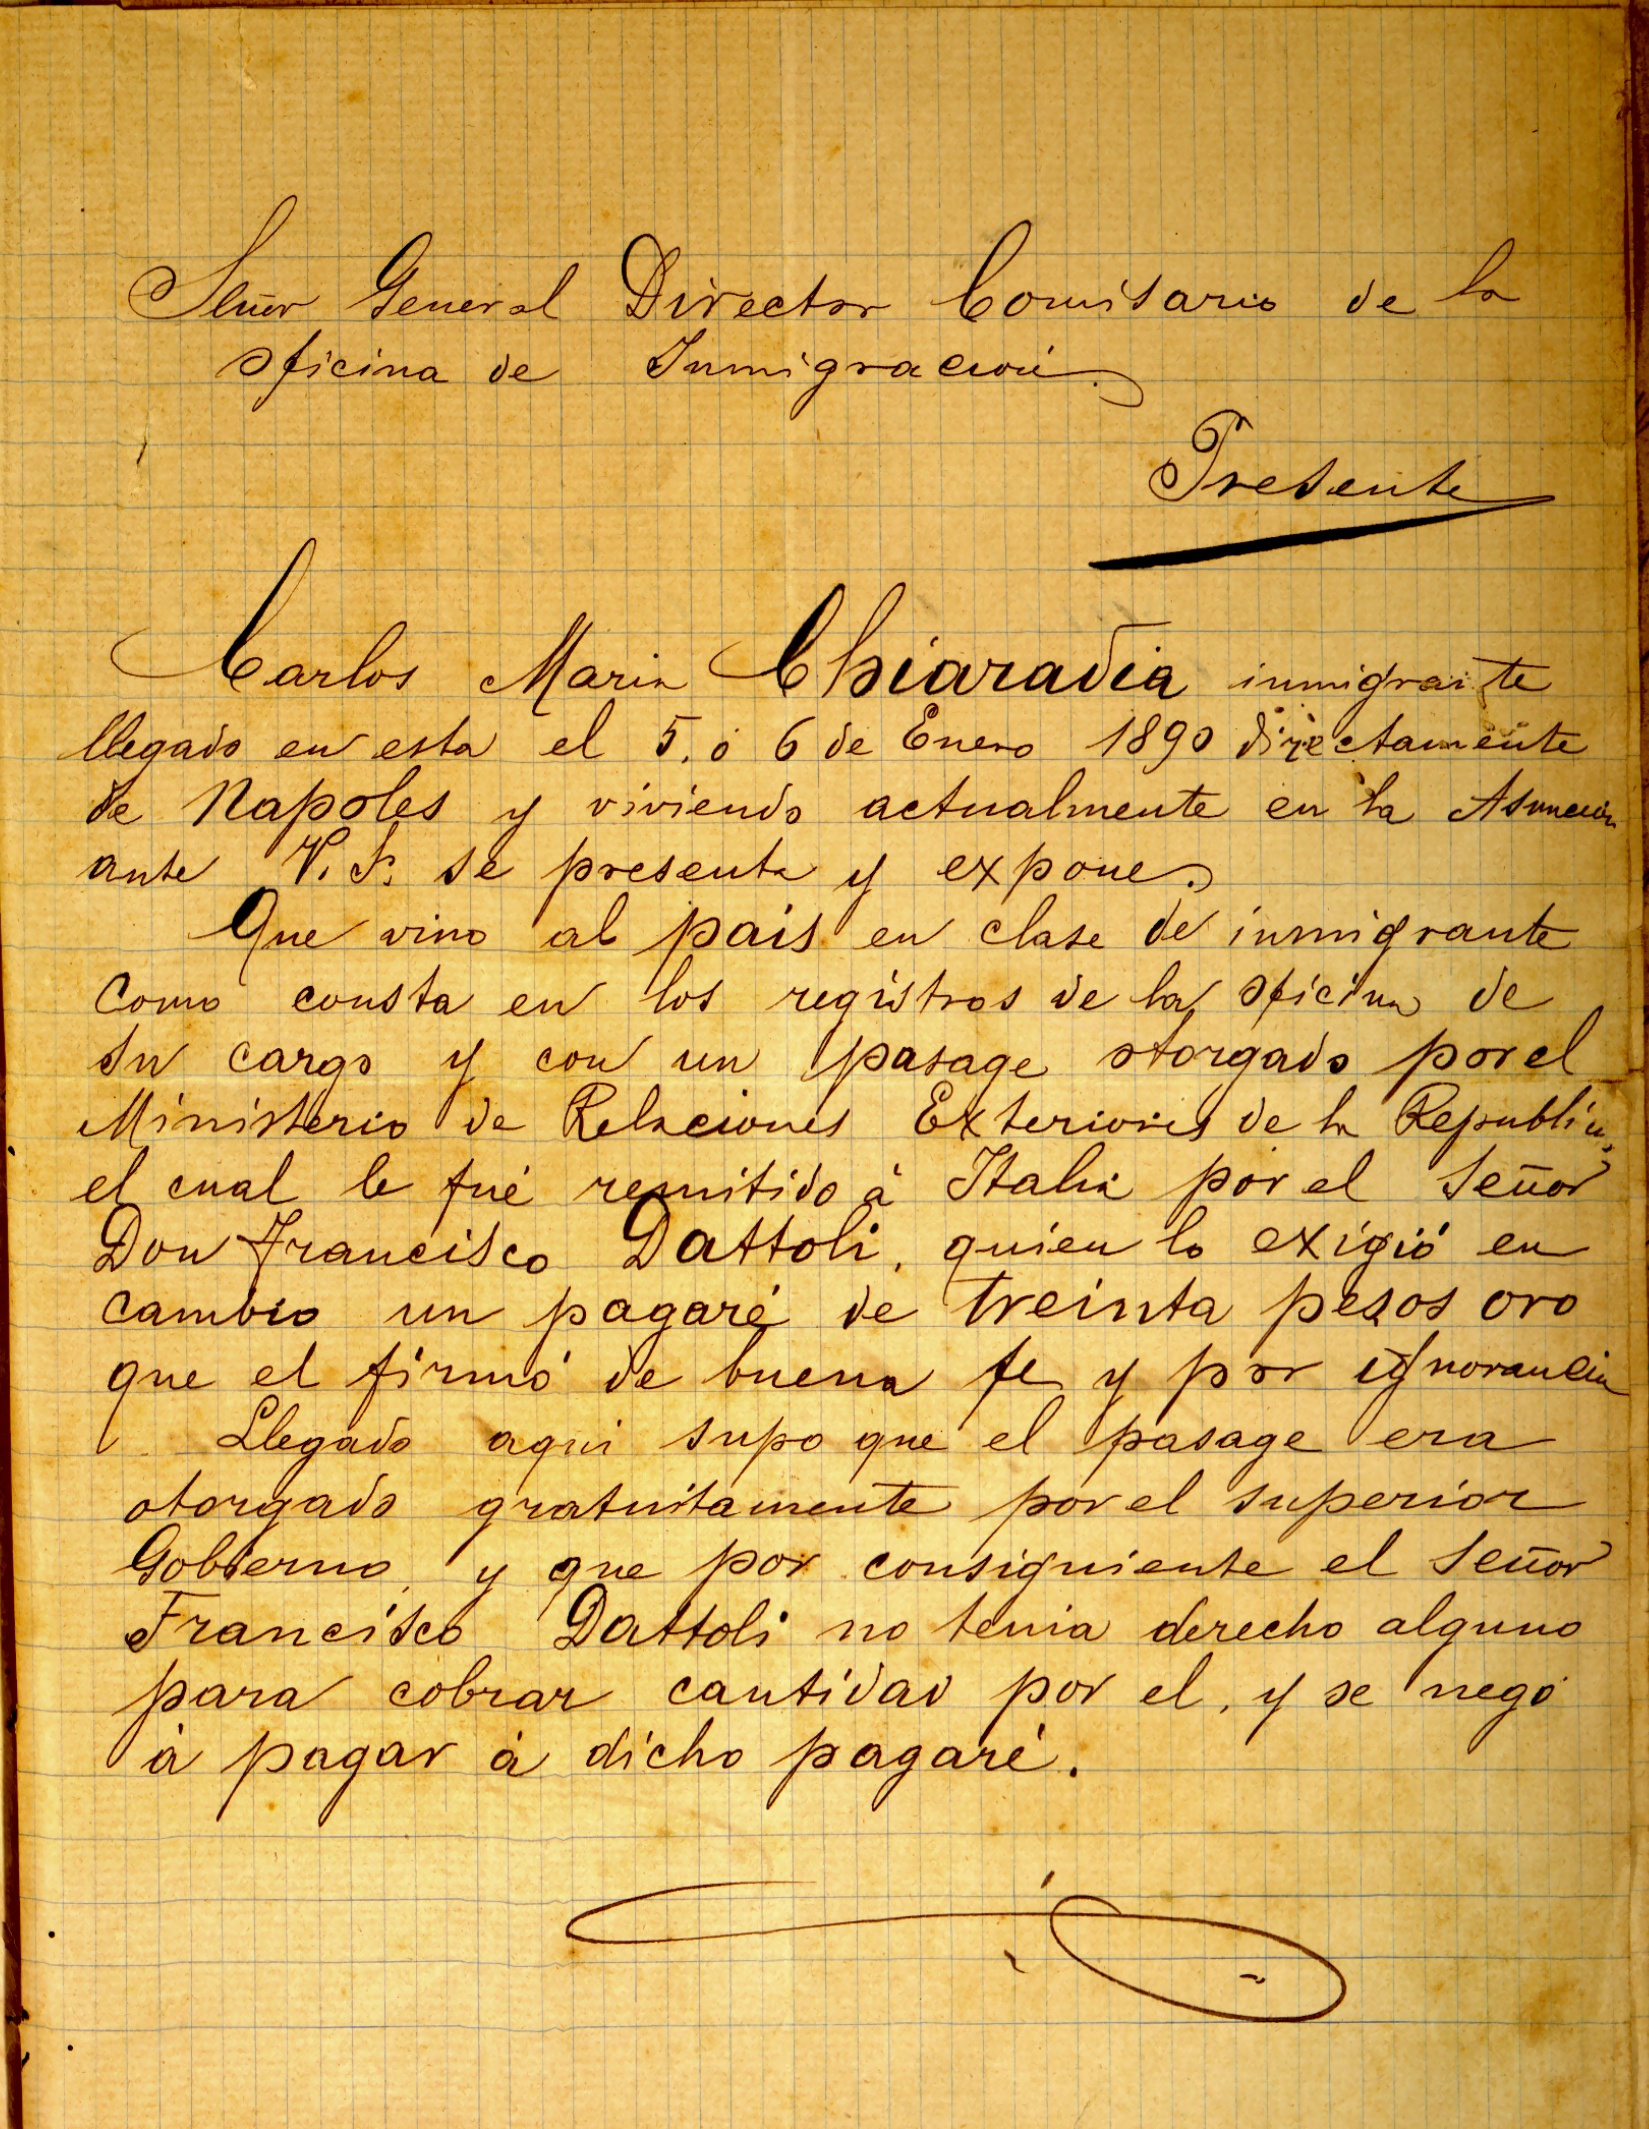 Señor General Director Comisario de la
oficina de Inmigración.
Presente
Carlos Maria Chiaradia inmigrante
llegado en esta el 5. ó 6 de Enero 1890 directamente
de Napoles y viviendo actualmente en la Asuncion
ante V. S. se presenta y expone.
Que vino al pais en clase de inmigrante
como consta en los registros de la oficina de
su cargo y con un pasage otorgado por el
Ministerio de Relaciones Exteriores de la Republica,
el cual le fué remitido à Italia por el Señor
Don Francisco Dattoli, quien lo exigió en
cambio un pagaré de treinta pesos oro
que el firmó de buena fe y por ignorancia
Llegado aqui supo que el pasage era
otorgado gratuitamente por el superior
Gobierno, y que por consiguiente el Señor
Francisco Dattoli no tenia derecho alguno
para cobrar cantidad por el, y se negó
à pagar à dicho pagaré.